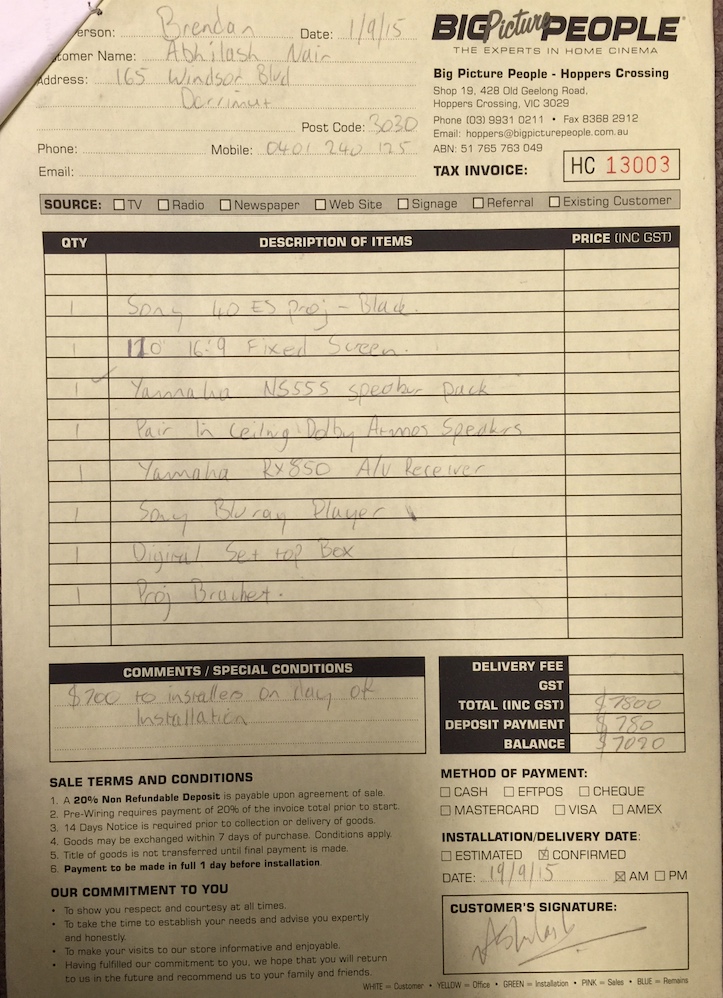 erson: Brendan Date: 1/9/15
tomer Name: Abhilash Nair
Address: 165 Windsor Blvd
Derrimut
Post Code: 3030
Phone: Mobile: 0401 240 125
Email:
BIG Picture PEOPLE
THE EXPERTS IN HOME CINEMA
Big Picture People - Hoppers Crossing
Shop 19, 428 Old Geelong Road,
Hoppers Crossing, VIC 3029
Phone (03) 9931 0211 • Fax 8368 2912
Email: hoppers@bigpicturepeople.com.au
ABN: 51 765 763 049
TAX INVOICE: HC 13003
SOURCE: TV Radio Newspaper Web Site Signage Referral Existing Customer
QTY DESCRIPTION OF ITEMS PRICE (INC GST)
1 Sony 40 ES Proj - Black.
1 120 16:9 Fixed Screen.
1 Yamaha NS555 speaker pack
1 Pair In Ceiling Dolby Atmos Speakers
1 Yamaha RX850 A/V Receiver
1 Sony Bluray Player
1 Digital Set top Box
1 Proj Bracket.
COMMENTS / SPECIAL CONDITIONS
$700 to installers on day of
Installation
DELIVERY FEE
GST
TOTAL (INC GST) $7800
DEPOSIT PAYMENT $780
BALANCE $7020
SALE TERMS AND CONDITIONS
1. A 20% Non Refundable Deposit is payable upon agreement of sale.
2. Pre-Wiring requires payment of 20% of the invoice total prior to start.
3. 14 Days Notice is required prior to collection or delivery of goods.
4. Goods may be exchanged within 7 days of purchase. Conditions apply.
5. Title of goods is not transferred until final payment is made.
6. Payment to be made in full 1 day before installation.
OUR COMMITMENT TO YOU
• To show you respect and courtesy at all times.
• To take the time to establish your needs and advise you expertly
and honestly.
• To make your visits to our store informative and enjoyable.
• Having fulfilled our commitment to you, we hope that you will return
to us in the future and recommend us to your family and friends.
METHOD OF PAYMENT:
CASH EFTPOS CHEQUE
MASTERCARD VISA AMEX
INSTALLATION/DELIVERY DATE:
ESTIMATED CONFIRMED
DATE: 19/9/15 AM PM
CUSTOMER'S SIGNATURE:
Abhilash
WHITE = Customer • YELLOW = Office • GREEN = Installation • PINK = Sales • BLUE = Remains